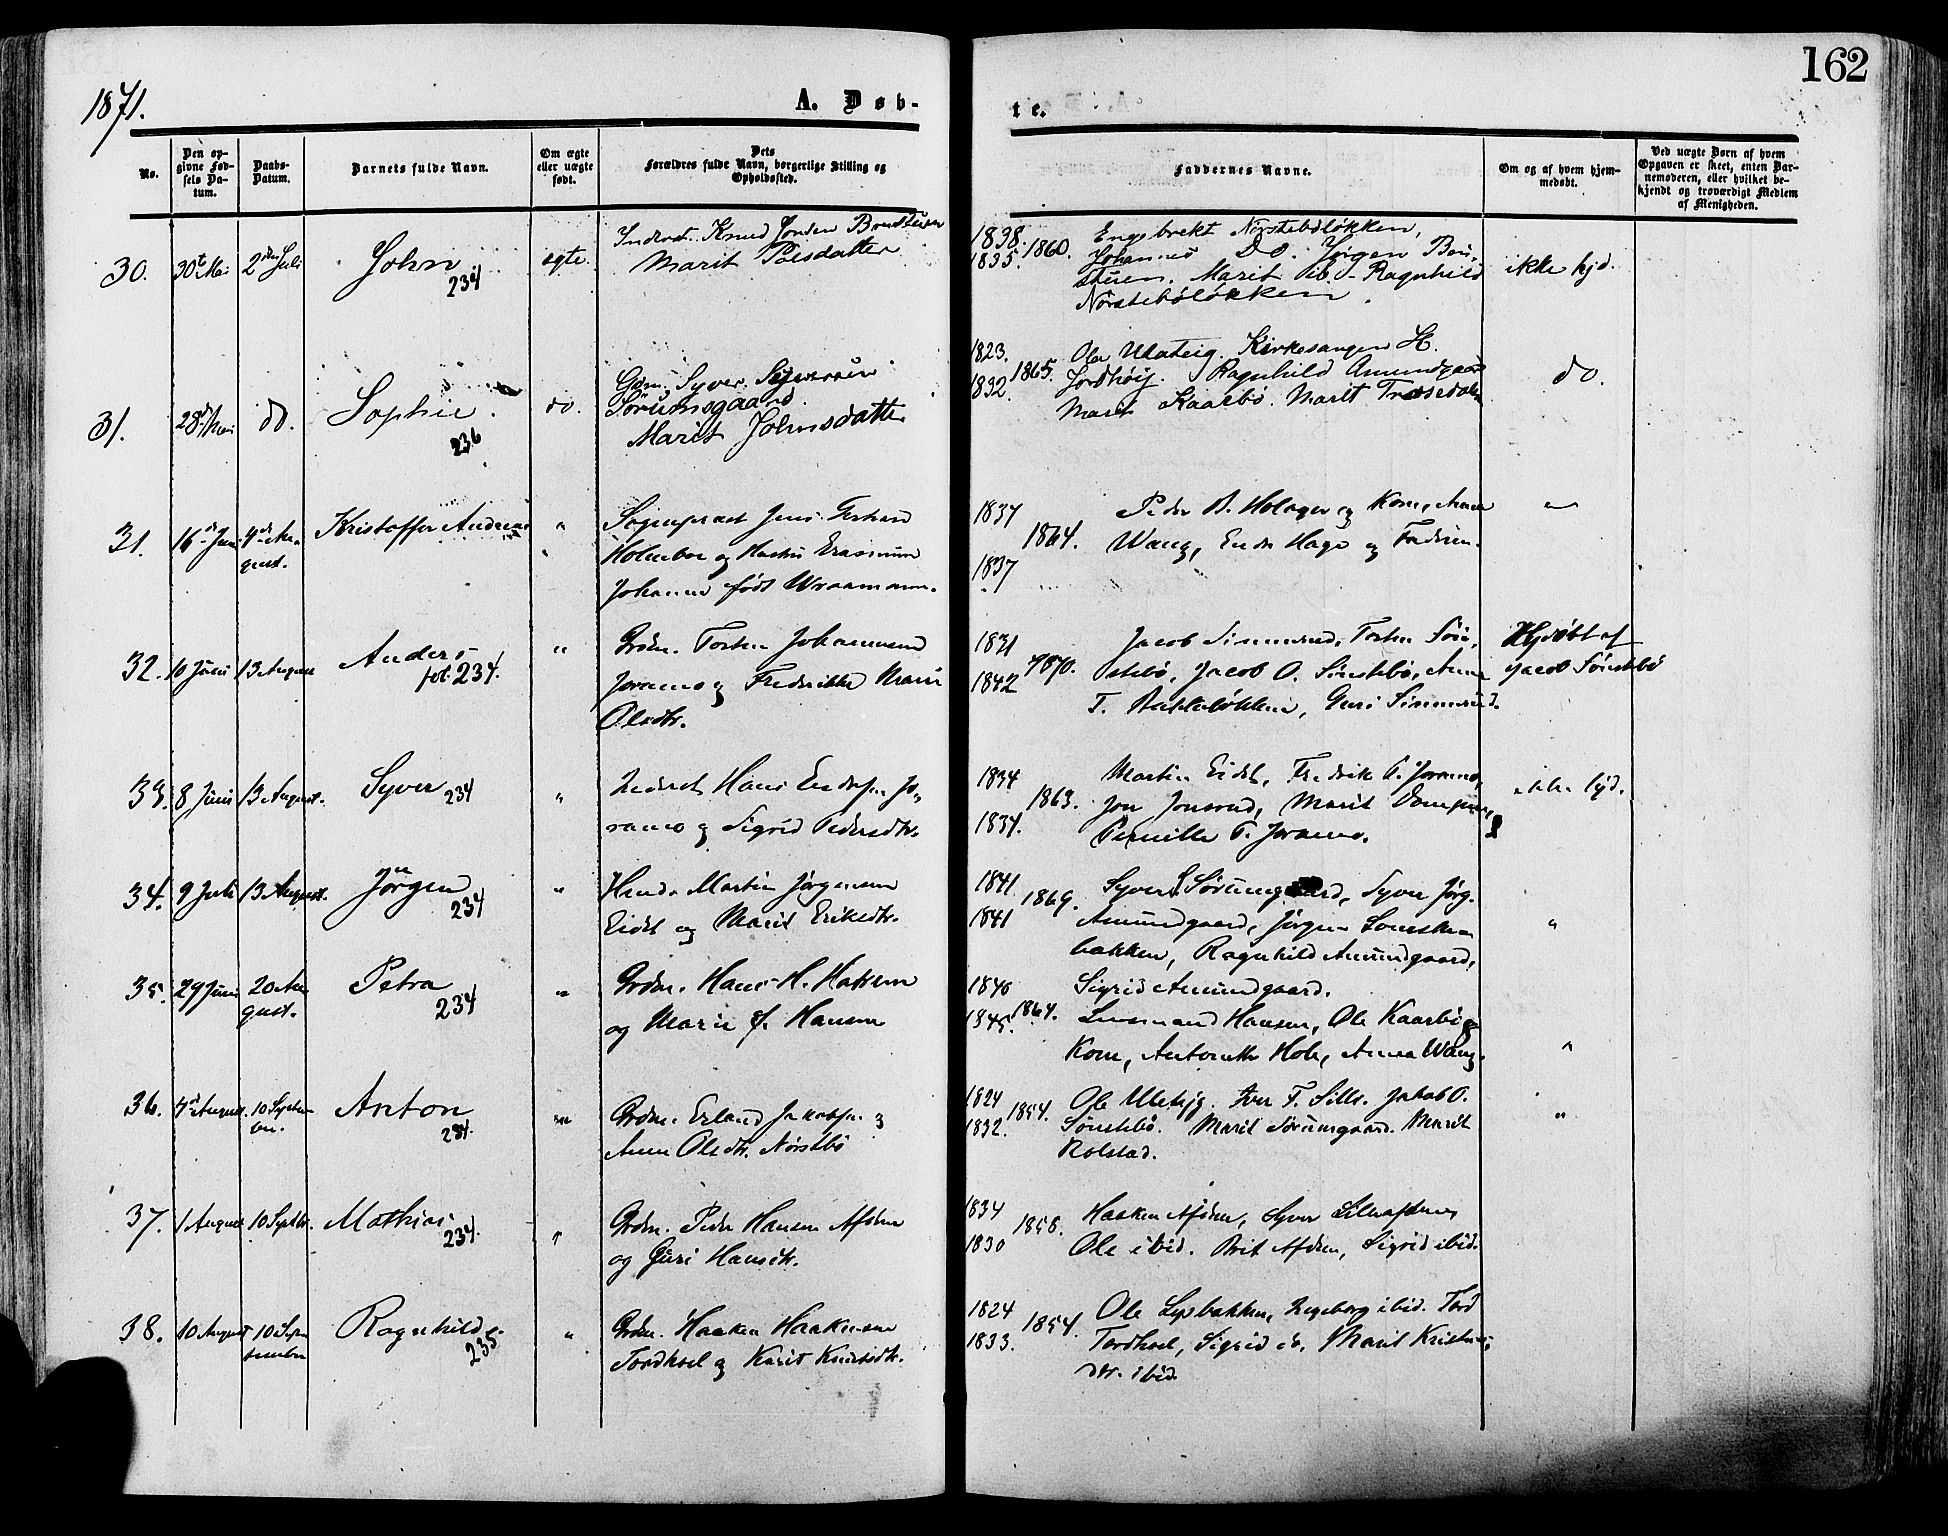 162
1871.
A. Døb-
te.
No.
Den op-
givne Fød-
sels Da-
tum.
Daabs-
Datum.
Barnets fulde Navn.
Om ægte
eller uægte
født.
Dets
Forældres fulde Navn, borgerlige Stilling og
Opholdssted.
Faddernes Navne.
Om og af hvem hjem-
medøbt.
Ved uægte Børn af hvem
Opgaven er skeet, enten Bar-
nemoderen, eller hvilket be-
kjendt og troværdigt Medlem
af Menigheden.
30. 30te Mai 2den Juli John 234 ægte. Inderst. Knud Jonsen
Marit Polsdatter
1838. 1835. 1860. Engebrekt Nørstebøløkken,
Johannes Do. Jørgen
Marit ib. Ragnhild
Nørstebøløkken.
ikke hjd.
31. 28de Mai do. Sophie. 236 do. Grdm. Syver Syversen
Sørumsgaard.
Marit Johnsdatter
1823. 1832. 1865. Ola Ulateig. Kirkesanger H.
Jordhøij. Ragnhild Amundgaard
Marit Kaarbø. Marit
do.
31. 16de Juni 4de August. Kristoffer Andreas " Sogneprest Jens
Holmboe og Hustru Erasmine
Johanne født Wraamann.
1837 1837 1864. Peder B. Holager og Kone, Anne
Wang, Endr Hage og
32. 10 Juni 13 August Anders fol. 234. " Grdm. Tosten Johannesen
Joramo og Fredrikke Marie
Olsdtr.
1831 1842 1870. Jacob Simensrud, Tosten Søn-
stebø, Jacob O. Sønstebø, Anne
T. Bakkeløkken, Guri Simensrud.
Hjdøbt af
Jacob Sønstebø
33. 8 Juni 13 August. Syver 234 " Inderst Hans Jo-
ramo og Sigrid Pedersdtr.
1834 1834. 1863. Martin Eidet, Fredrik P. Joramo,
Jon Jonsrud, Marit
Pernille P. Joramo.
ikke hjd.
34. 9 Juli 13 August. Jørgen 234 " Martin Jørgensen
Eidet og Marit Eriksdtr.
1841 1841 1869. Syver S. Sørumgaard, Syver Jørg.
Amundgaard, Jørgen
bakken, Ragnhild Amundgaard,
Sigrid Amundgaard.
"
35. 29 Juni 20 August. Petra 234 " Grdm. Hans H. Hansen
og Marie f. Hansen
1840 1845. 1864. Lensmand Hansen, Ole Kaarbø og
Kone, Antonette Hole, Anna Wang.
"
36. 4de August. 10 September. Anton 234. " Grdm. Erland Jakobsen og
Anne Olsdtr. Nørstbø
1824 1832. 1854. Ole Uleteig. Iver T. Sille. Jakob O.
Sønstebø. Marit Sørumgaard. Marit
Rolstad.
"
37. 1 August 10 Septbr. Mathias 234. " Grdm. Peder Hansen Afdem
og Guri Hansdtr.
1834 1830 1858. Haaken Afdem, Syver
Ole ibid. Brit Afdem, Sigrid ibid.
38. 10 August 10 September Ragnhild 235. " Grdm. Haaken Haakensen
Tordhoel og Marit Knudsdtr.
1824 1833. 1854. Ole Lysbakken, Ingeborg ibid. Tord
Tordhoel, Sigrid do, Marit Kristens-
dtr. ibid.